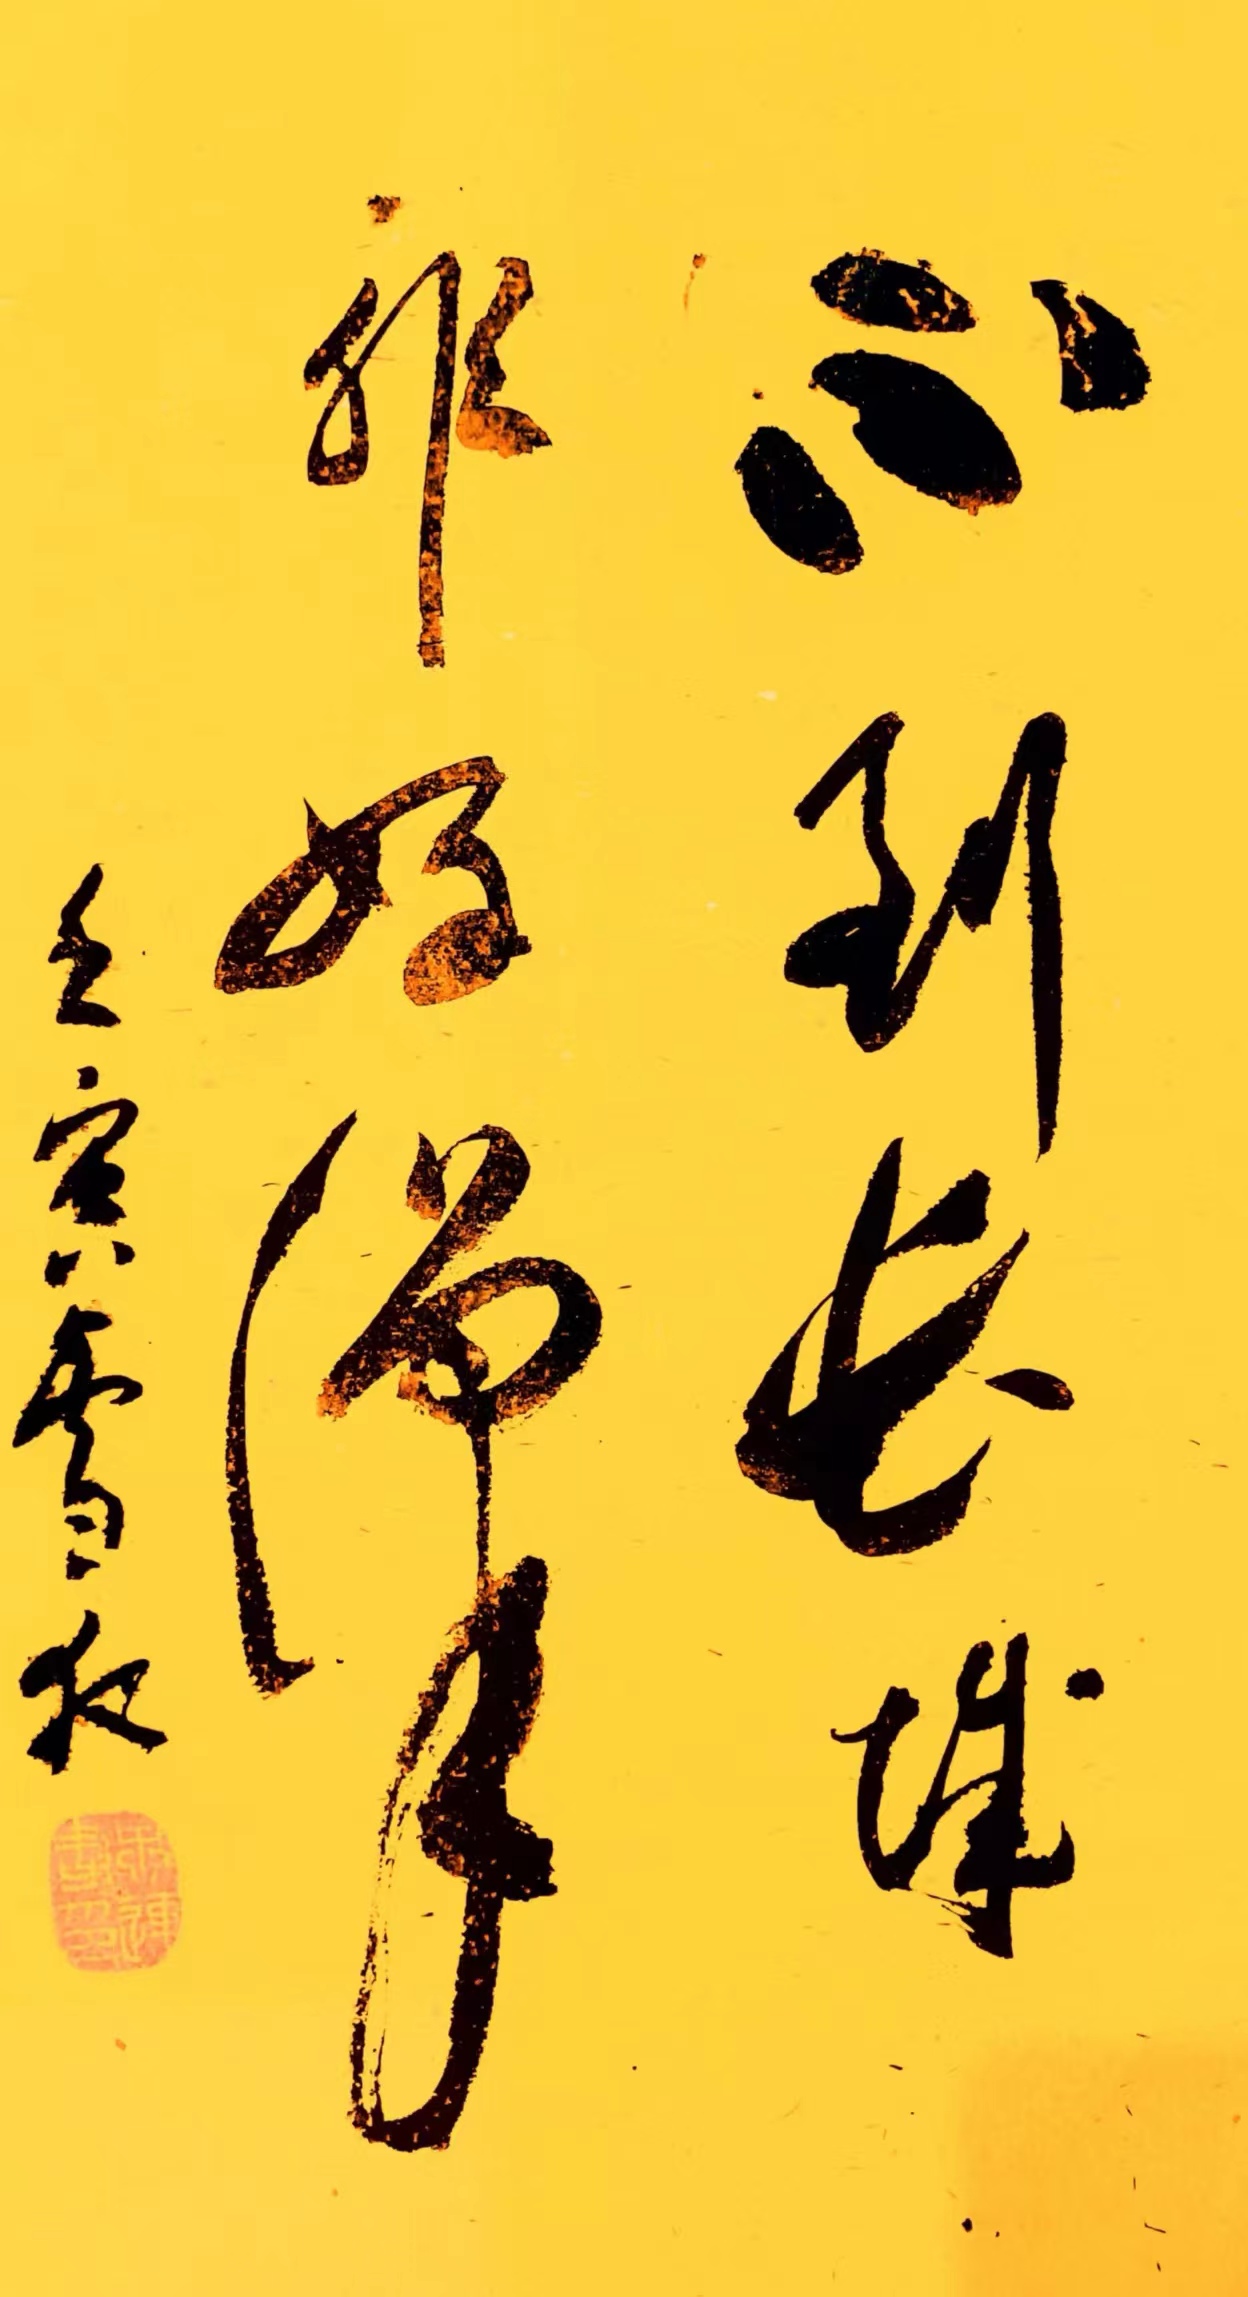 不到长城
非好汉
壬寅雪夜